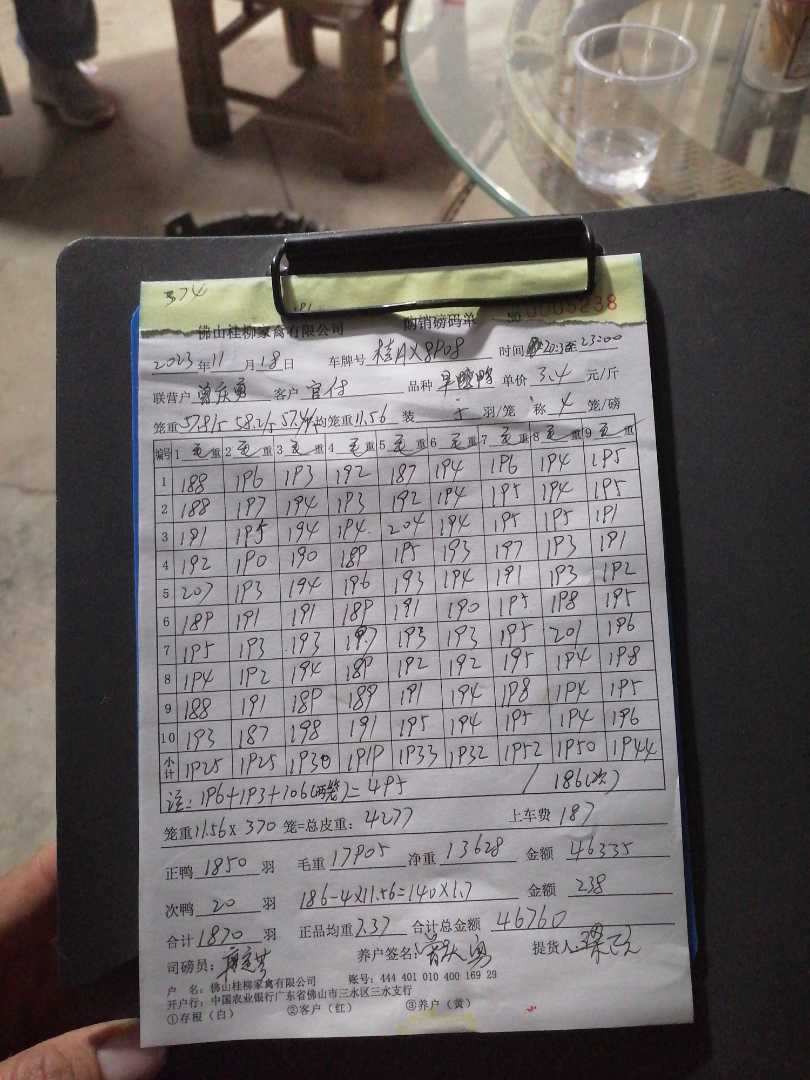 374
佛山桂柳家禽有限公司 购销磅码单 №0005238
2023年11月18日 车牌号 桂AX8908 时间 20:3 至 23:00
联营户 曾庆勇 客户 官付 品种 单价 3.4 元/斤
笼重 57.8/5 58.2/5 57.4/ 均笼重 11.56 装 5 羽/笼 称 4 笼/磅
编号 1 毛重 2 毛重 3 毛重 4 毛重 5 毛重 6 毛重 7 毛重 8 毛重 9 毛重
1 188 196 193 192 187 194 196 194 195
2 188 197 194 193 192 194 195 194 195
3 191 195 194 194 204 194 195 195 191
4 192 190 190 189 195 193 197 193 191
5 207 193 194 196 193 194 191 193 192
6 189 191 191 189 191 190 195 198 195
7 195 193 193 197 193 193 195 201 196
8 194 192 194 189 192 192 195 194 198
9 188 191 189 189 191 194 198 194 195
10 193 187 198 191 195 194 195 194 196
小计 1925 1925 1930 1919 1933 1932 1952 1950 1944
注: 196+193+106(两笼)=495 / 186(次)
笼重 11.56 x 370 笼=总皮重: 4277 上车费 187
正鸭 1850 羽 毛重 17905 净重 13628 金额 46335
次鸭 20 羽 186-4x11.56=140x1.7 金额 238
合计 1870 羽 正品均重 7.37 合计总金额 46760
司磅员: 养户签名: 提货人:
户 名: 佛山桂柳家禽有限公司 账号: 444 401 010 400 169 29
开户行: 中国农业银行广东省佛山市三水区三水支行
①存根(白) ②客户(红) ③养户(黄)